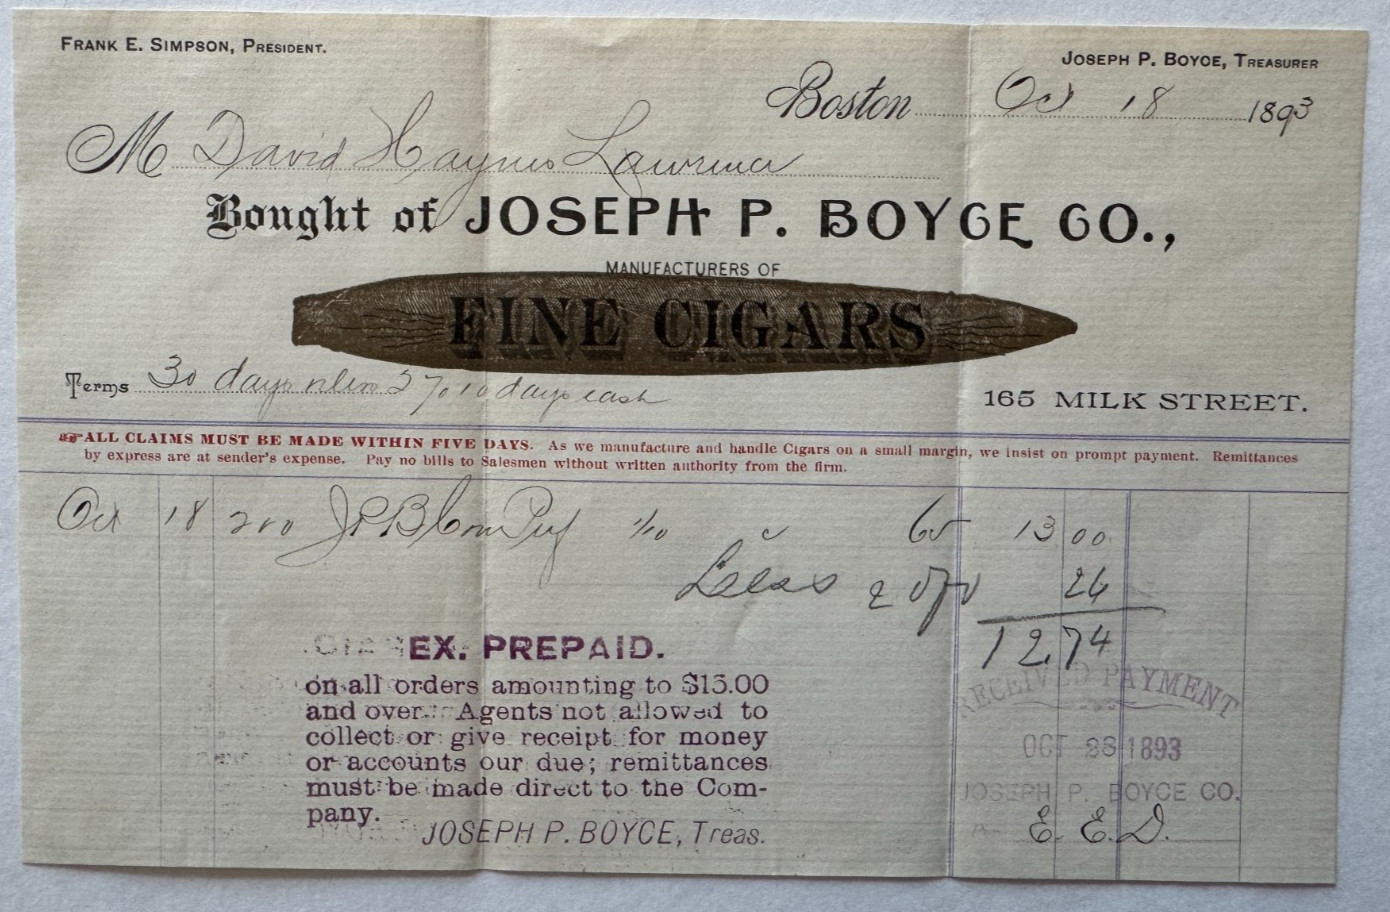 FRANK E. SIMPSON, PRESIDENT.
JOSEPH P. BOYCE, TREASURER
Boston Oct 18 1893
M David Haynes Lawrence
Bought of JOSEPH P. BOYCE CO.,
MANUFACTURERS OF
FINE CIGARS
Terms 30 days 2% 10 days cash
165 MILK STREET.
ALL CLAIMS MUST BE MADE WITHIN FIVE DAYS. As we manufacture and handle Cigars on a small margin, we insist on prompt payment. Remittances
by express are at sender's expense. Pay no bills to Salesmen without written authority from the firm.
Oct 18 200 JPB 1/10 65 13 00
Less 2% 26
12.74
EX. PREPAID.
on all orders amounting to $15.00
and over. Agents not allowed to
collect or give receipt for money
or accounts our due; remittances
must be made direct to the Com-
pany.
JOSEPH P. BOYCE, Treas.
RECEIVED PAYMENT
OCT 28 1893
JOSEPH P. BOYCE CO.
E. E. D.